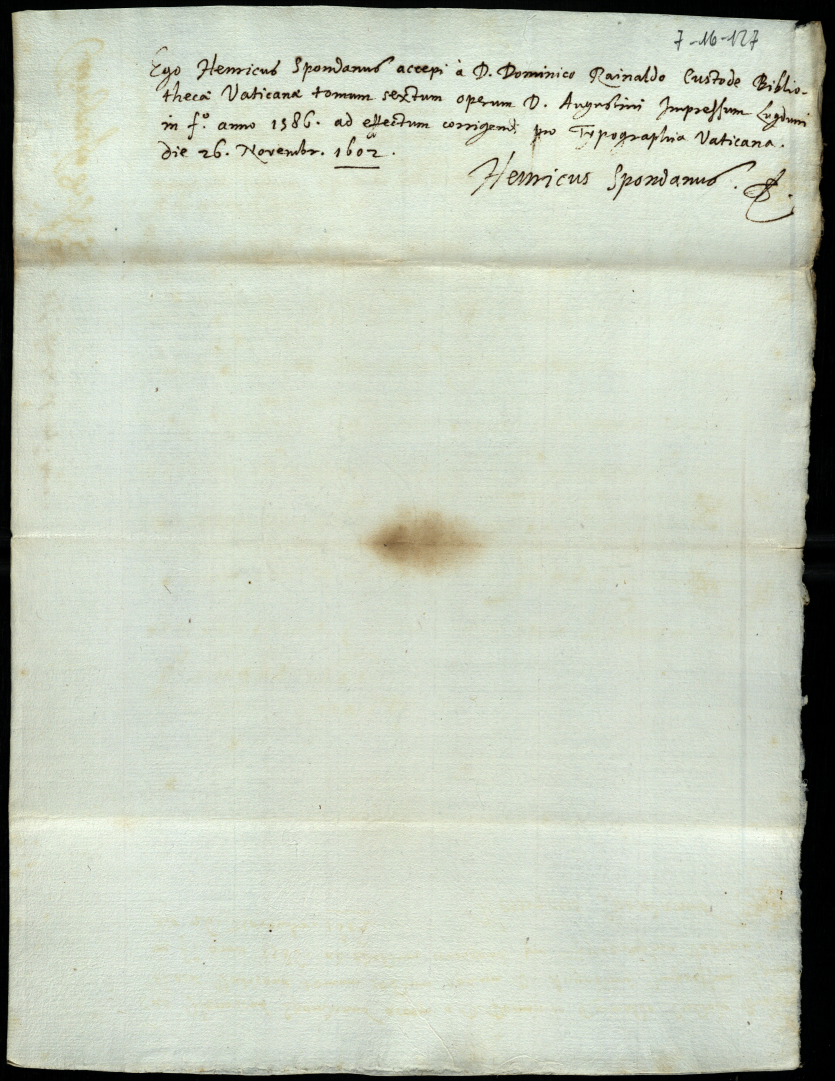 7-16-127
Ego Henricus Spondanus accepi à D. Dominico Rainaldo Custode Biblio-
thecæ Vaticanæ tomum sextum operum D. Augustini Impressum Lugduni
in f.º anno 1586. ad effectum corrigendi pro Typographia Vaticana.
Die 26. Novembr. 1602.
Henricus Spondanus.